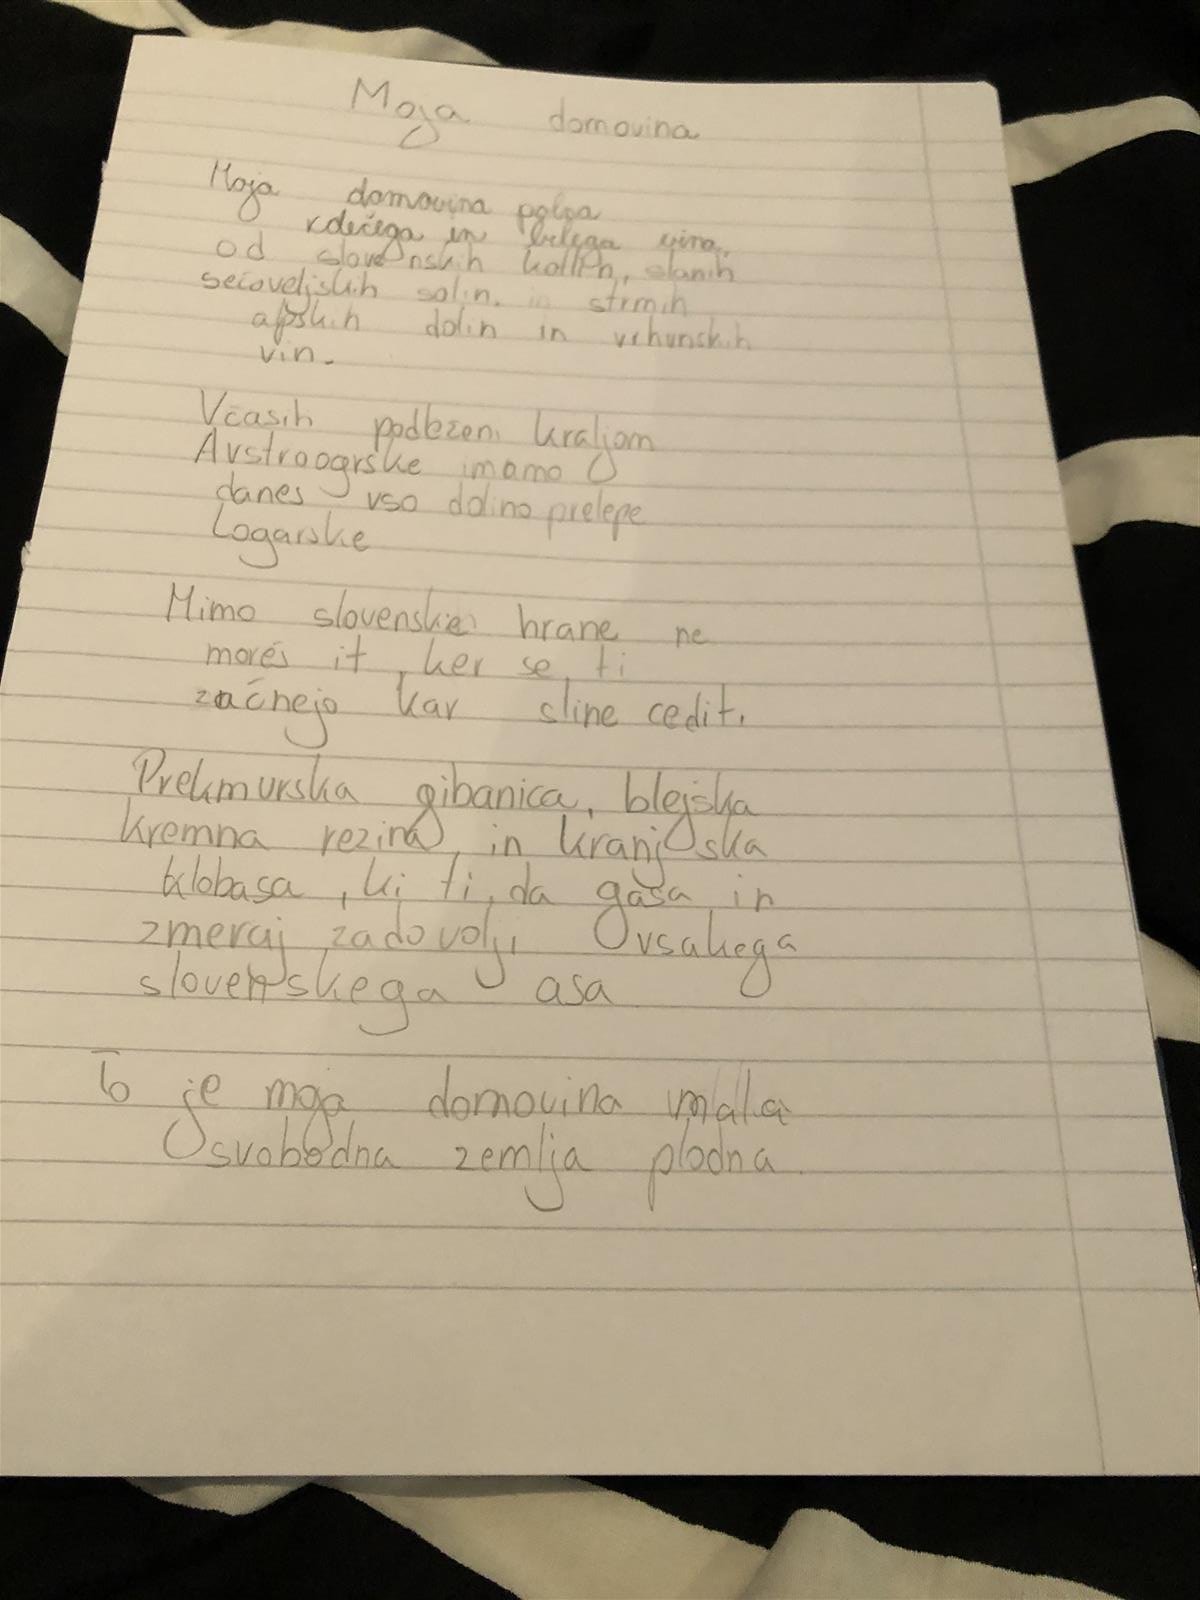 Moja domovina
Moja domovina polna
rdečega in belega vina,
od slovenskih kotlin, slanih
sečoveljskih solin, in strmih
alpskih dolin in vrhunskih
vin.
Včasih podrezeni kraljom
Avstroogrske imamo
danes vso dolino prelepe
Logarske
Mimo slovenske hrane ne
moreš it, ker se ti
začnejo kar sline cedit.
Prekmurska gibanica, blejska
kremna rezina, in kranjska
klobasa, ki ti da gasa in
zmeraj zadovolji vsakega
slovenskega asa
To je moja domovina mala
svobodna zemlja plodna